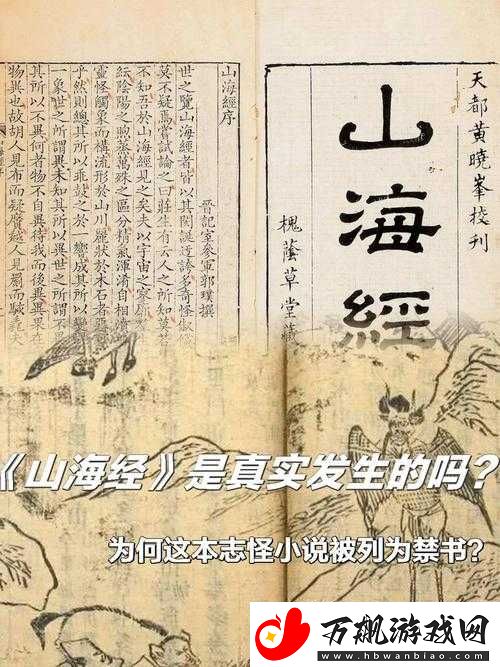 天都黃曉峯校刊
山海經
槐蔭草堂藏
山海經序
晉記室參軍郭璞撰
世之覽山海經者皆以其閎誕迂誇多奇怪俶儻
莫不疑焉嘗試論之曰莊生有云人之所知莫若
不知吾於山海經見之矣夫以宇宙之寥廓
紜陰陽之煦蒸萬殊之區分精氣渾淆自相濆
靈怪觸象而構流形於山川麗狀於木石者惡
乎然則總其所以乖鼓之於一響成其所以變
一象世之所謂異未知其所以異世之所謂不異
其所以不異何者物不自異待我而後異異果在
物異也故胡人見布而疑黂越人見罽而駭毳夫
《山海经》是真实发生的吗？
为何这本志怪小说被列为禁书？
万飙游戏网
www.hbwanbiao.com